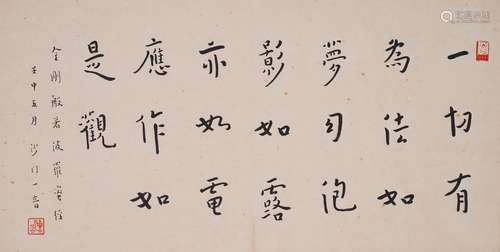 一切有
為法如
夢幻泡
影如露
亦如電
應作如
是觀
金剛般若波羅蜜經
壬申五月 沙門一音